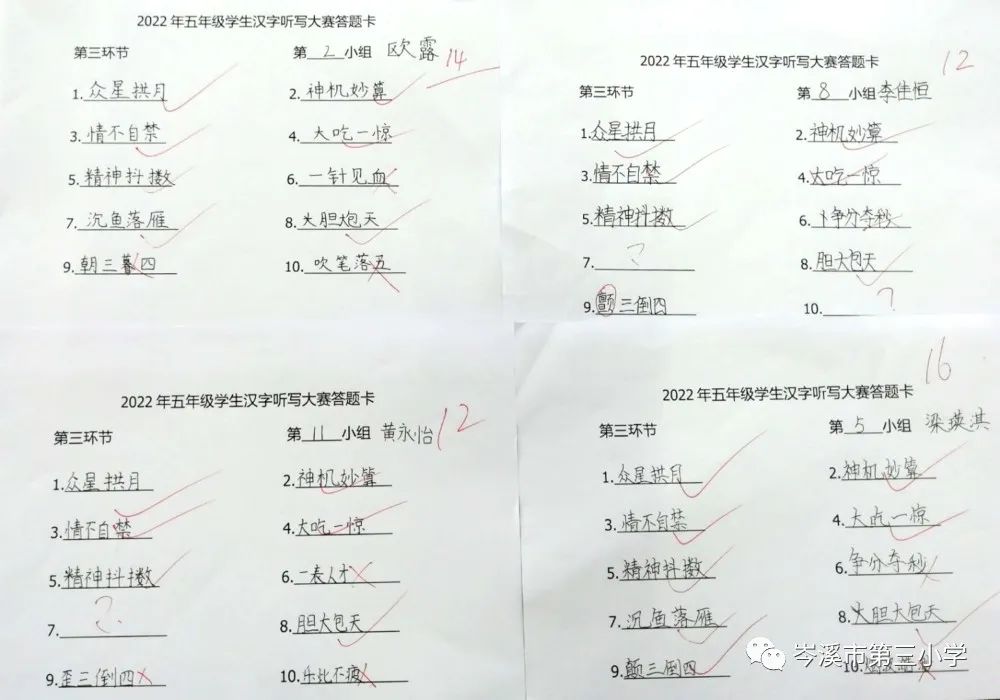 2022年五年级学生汉字听写大赛答题卡
第三环节 第 2 小组 欧露 14
1.众星拱月 2.神机妙算
3.情不自禁 4.大吃一惊
5.精神抖擞 6.一针见血
7.沉鱼落雁 8.大胆炮天
9.朝三暮四 10.吹笔落五
2022年五年级学生汉字听写大赛答题卡 12
第三环节 第 8 小组 李佳恒
1.众星拱月 2.神机妙算
3.情不自禁 4.大吃一惊
5.精神抖擞 6.争分夺秒
7. ? 8.胆大包天
9.颠三倒四 10. ?
2022年五年级学生汉字听写大赛答题卡
第三环节 第 11 小组 黄永怡 12
1.众星拱月 2.神机妙算
3.情不自禁 4.大吃一惊
5.精神抖擞 6.一表人才
7. ? 8.胆大包天
9.歪三倒四 10.乐此不疲
16
2022年五年级学生汉字听写大赛答题卡
第三环节 第 5 小组 梁瑛淇
1.众星拱月 2.神机妙算
3.情不自禁 4.大吃一惊
5.精神抖擞 6.争分夺秒
7.沉鱼落雁 8.大胆大包天
9.颠三倒四 10.
岑溪市第三小学